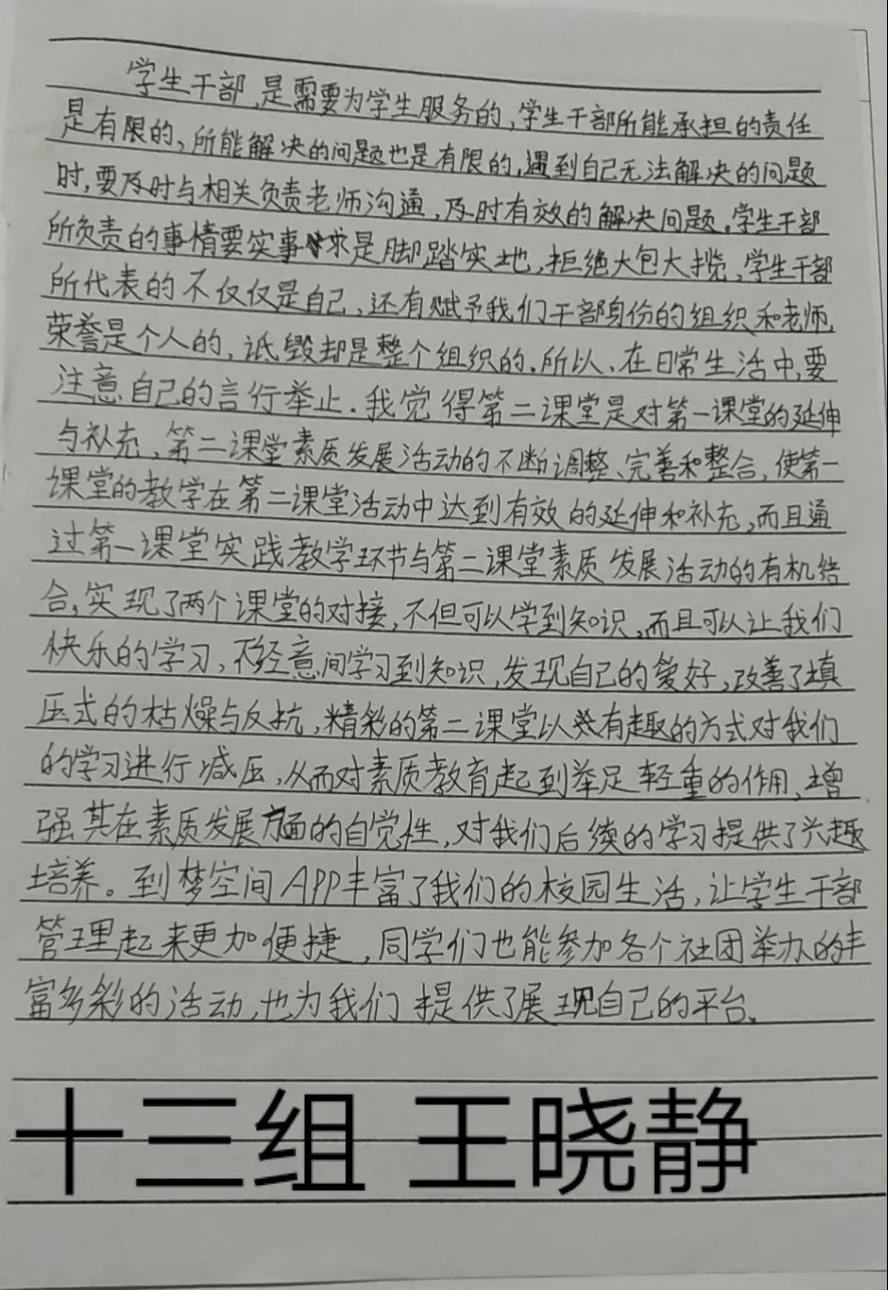 学生干部,是需要为学生服务的,学生干部所能承担的责任
是有限的,所能解决的问题也是有限的,遇到自己无法解决的问题
时,要及时与相关负责老师沟通,及时有效的解决问题。学生干部
所负责的事情要实事求是脚踏实地,拒绝大包大揽,学生干部
所代表的不仅仅是自己,还有赋予我们干部身份的组织和老师,
荣誉是个人的,诋毁却是整个组织的.所以、在日常生活中,要
注意自己的言行举止.我觉得第二课堂是对第一课堂的延伸
与补充,第二课堂素质发展活动的不断调整、完善和整合,使第一
课堂的教学在第二课堂活动中达到有效的延伸和补充,而且通
过第一课堂实践教学环节与第二课堂素质发展活动的有机结
合,实现了两个课堂的对接,不但可以学到知识,而且可以让我们
快乐的学习,不经意间学习到知识,发现自己的爱好,改善了填
压式的枯燥与反抗,精彩的第二课堂以有趣的方式对我们
的学习进行减压,从而对素质教育起到举足轻重的作用,增
强其在素质发展方面的自觉性,对我们后续的学习提供了兴趣
培养。到梦空间APP丰富了我们的校园生活,让学生干部
管理起来更加便捷,同学们也能参加各个社团举办的丰
富多彩的活动,也为我们提供了展现自己的平台。
十三组 王晓静